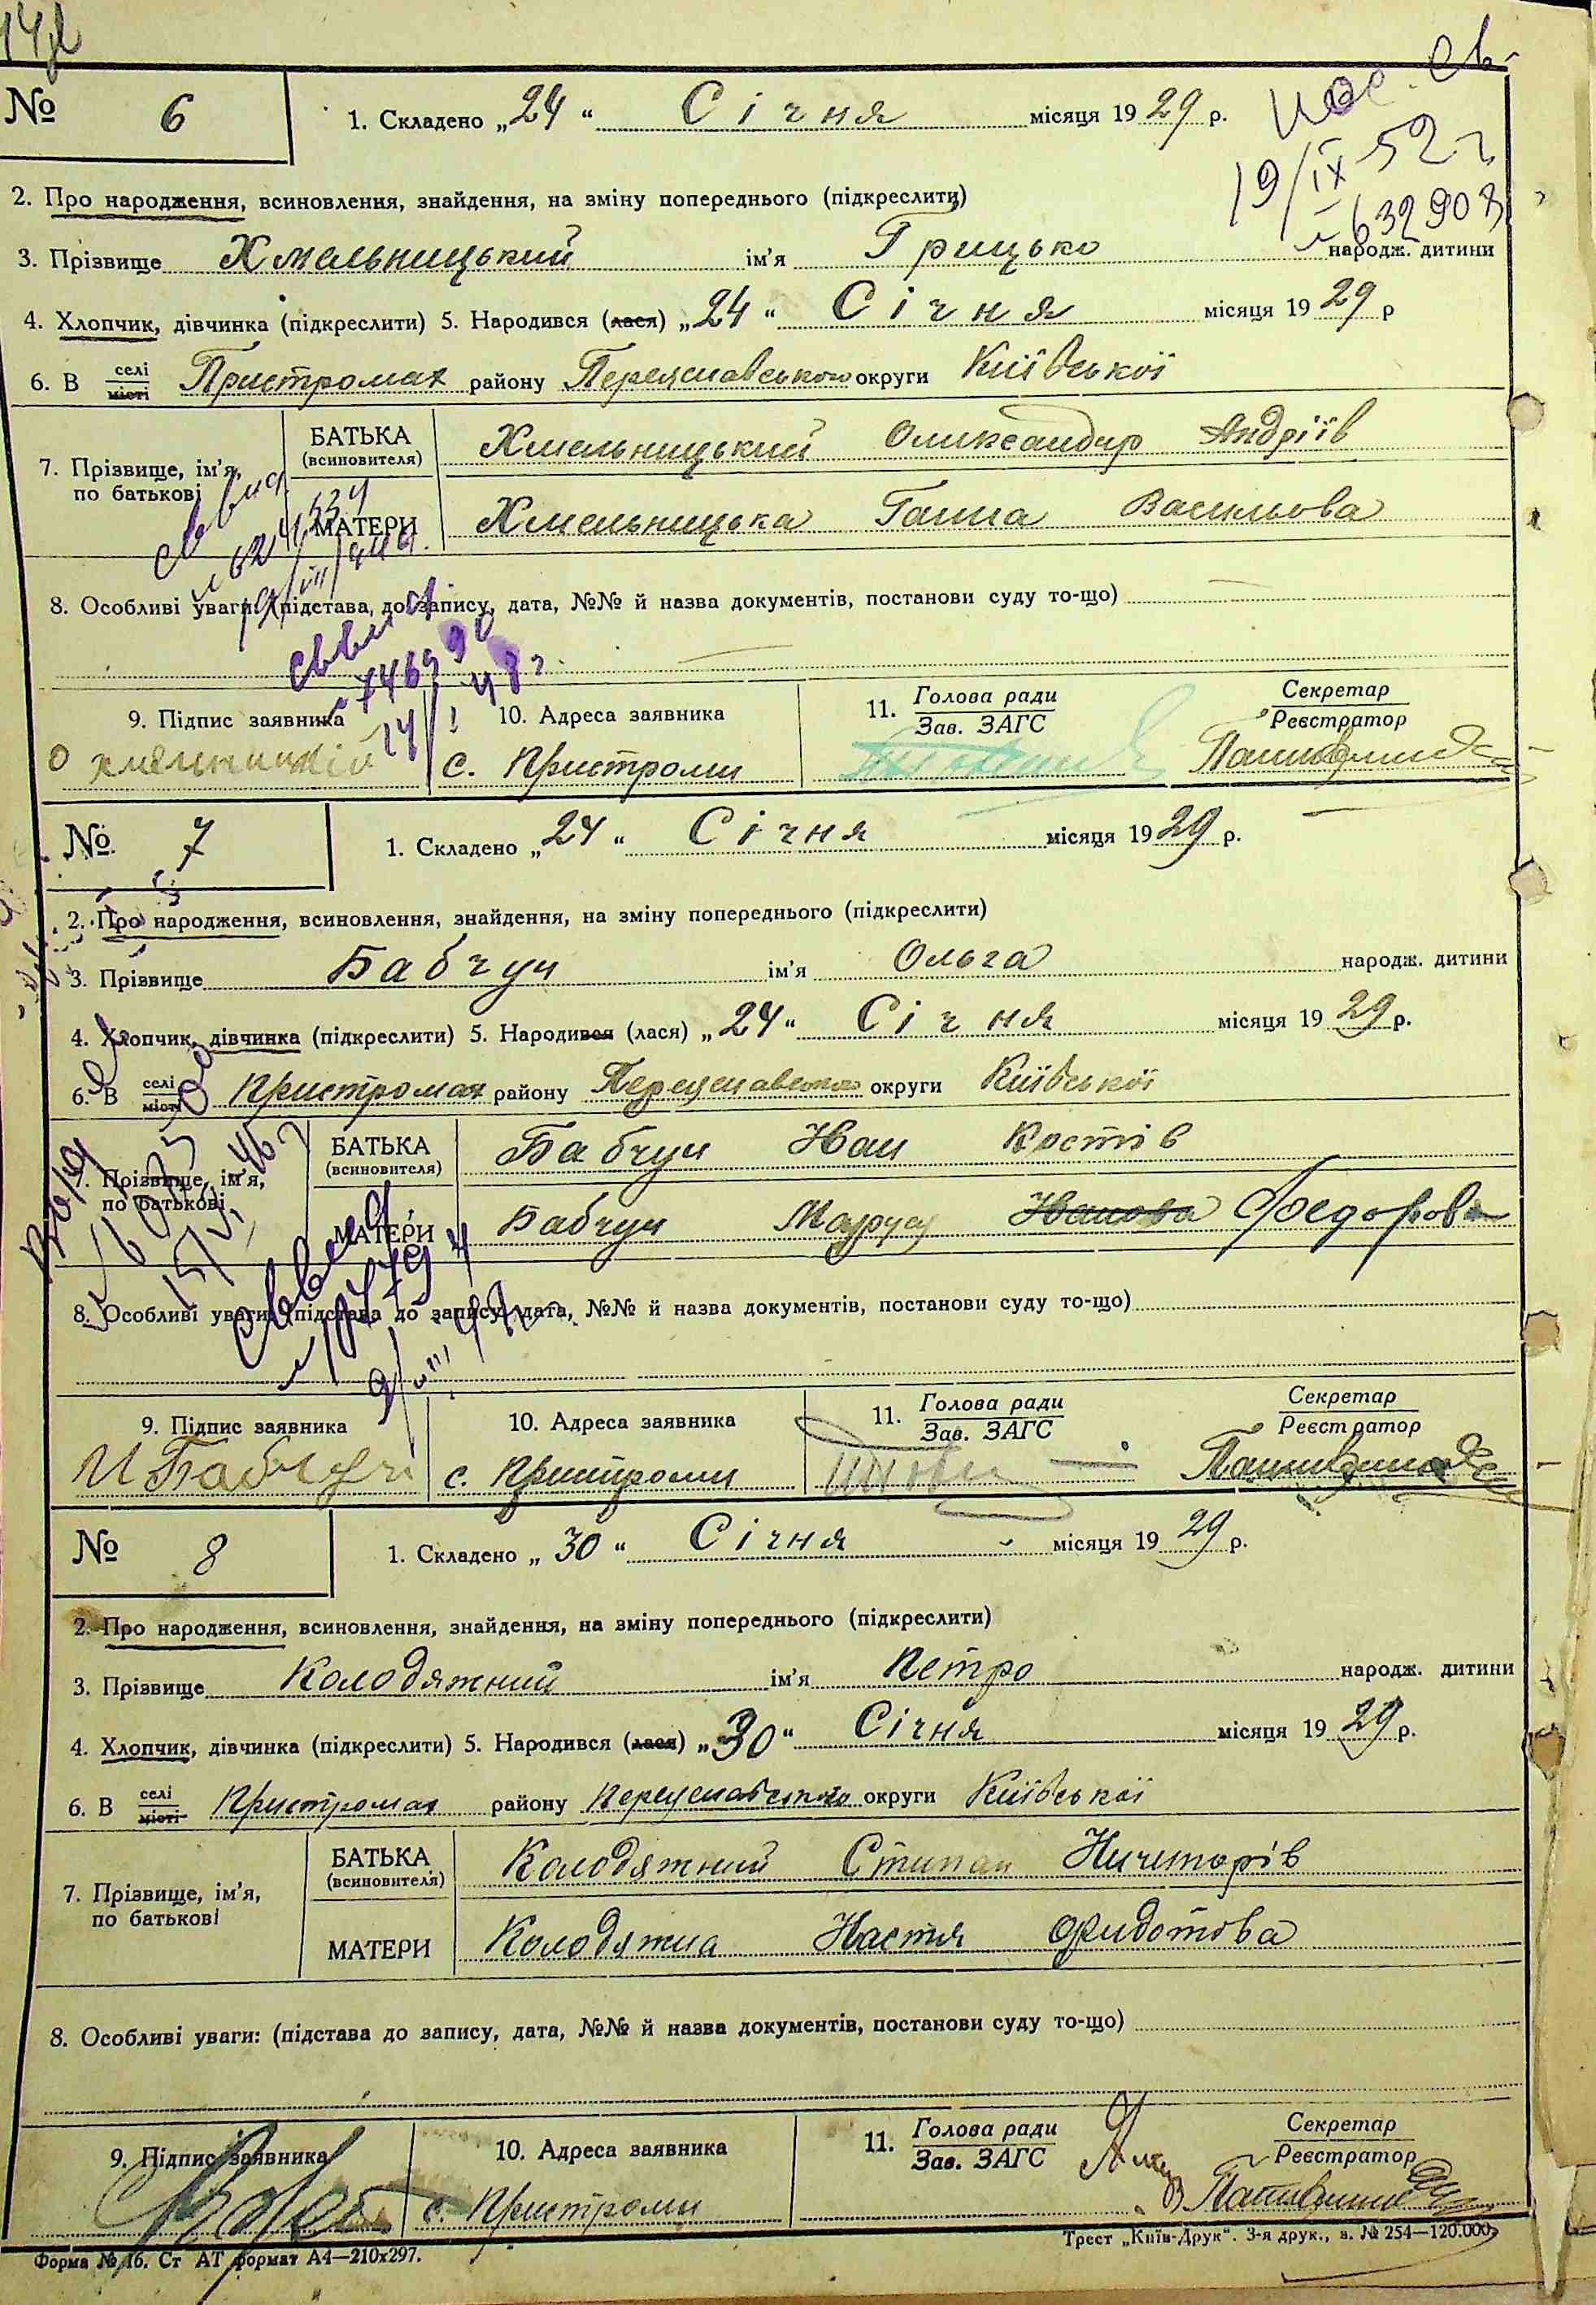 № 6
1. Складено „24“ Січня місяця 1929 р.
19/IX 52 г
№ 632908
2. Про народження, всиновлення, знайдення, на зміну попереднього (підкреслити)
3. Прізвище Хмельницький ім'я Грицько народж. дитини
4. Хлопчик, дівчинка (підкреслити) 5. Народився (лася) „24“ Січня місяця 1929 р
6. В селі місті Пристромах району Переяславського округи Київської
7. Прізвище, ім'я, по батькові
БАТЬКА (всиновителя) Хмельницький Олександир Андріїв
МАТЕРИ Хмельницька Ганна Васильова
8. Особливі уваги: (підстава до запису, дата, №№ й назва документів, постанови суду то-що)
9. Підпис заявника 10. Адреса заявника 11. Голова ради Зав. ЗАГС Секретар Реєстратор
О хмельницкій с. Пристроми
№ 7
1. Складено „24“ Січня місяця 1929 р.
2. Про народження, всиновлення, знайдення, на зміну попереднього (підкреслити)
3. Прізвище Бабчук ім'я Ольга народж. дитини
4. Хлопчик, дівчинка (підкреслити) 5. Народився (лася) „24“ Січня місяця 1929 р.
6. В селі місті Пристромах району Переяславського округи Київської
7. Прізвище, ім'я, по батькові
БАТЬКА (всиновителя) Бабчук Иван Костів
МАТЕРИ Бабчук Маруся Иванова Федорова
8. Особливі уваги: (підстава до запису, дата, №№ й назва документів, постанови суду то-що)
9. Підпис заявника 10. Адреса заявника 11. Голова ради Зав. ЗАГС Секретар Реєстратор
И Бабчук с. Пристроми
№ 8
1. Складено „30“ Січня місяця 1929 р.
2. Про народження, всиновлення, знайдення, на зміну попереднього (підкреслити)
3. Прізвище Колодяжний ім'я Петро народж. дитини
4. Хлопчик, дівчинка (підкреслити) 5. Народився (лася) „30“ Січня місяця 1929 р.
6. В селі місті Пристромах району Переяславського округи Київської
7. Прізвище, ім'я, по батькові
БАТЬКА (всиновителя) Колодяжний Стипан Ничипорів
МАТЕРИ Колодяжна Настя Фидотова
8. Особливі уваги: (підстава до запису, дата, №№ й назва документів, постанови суду то-що)
9. Підпис заявника 10. Адреса заявника 11. Голова ради Зав. ЗАГС Секретар Реєстратор
с. Пристроми
Форма № 16. Ст АТ формат А4—210x297.
Трест „Київ-Друк“. 3-я друк., з. № 254—120.000